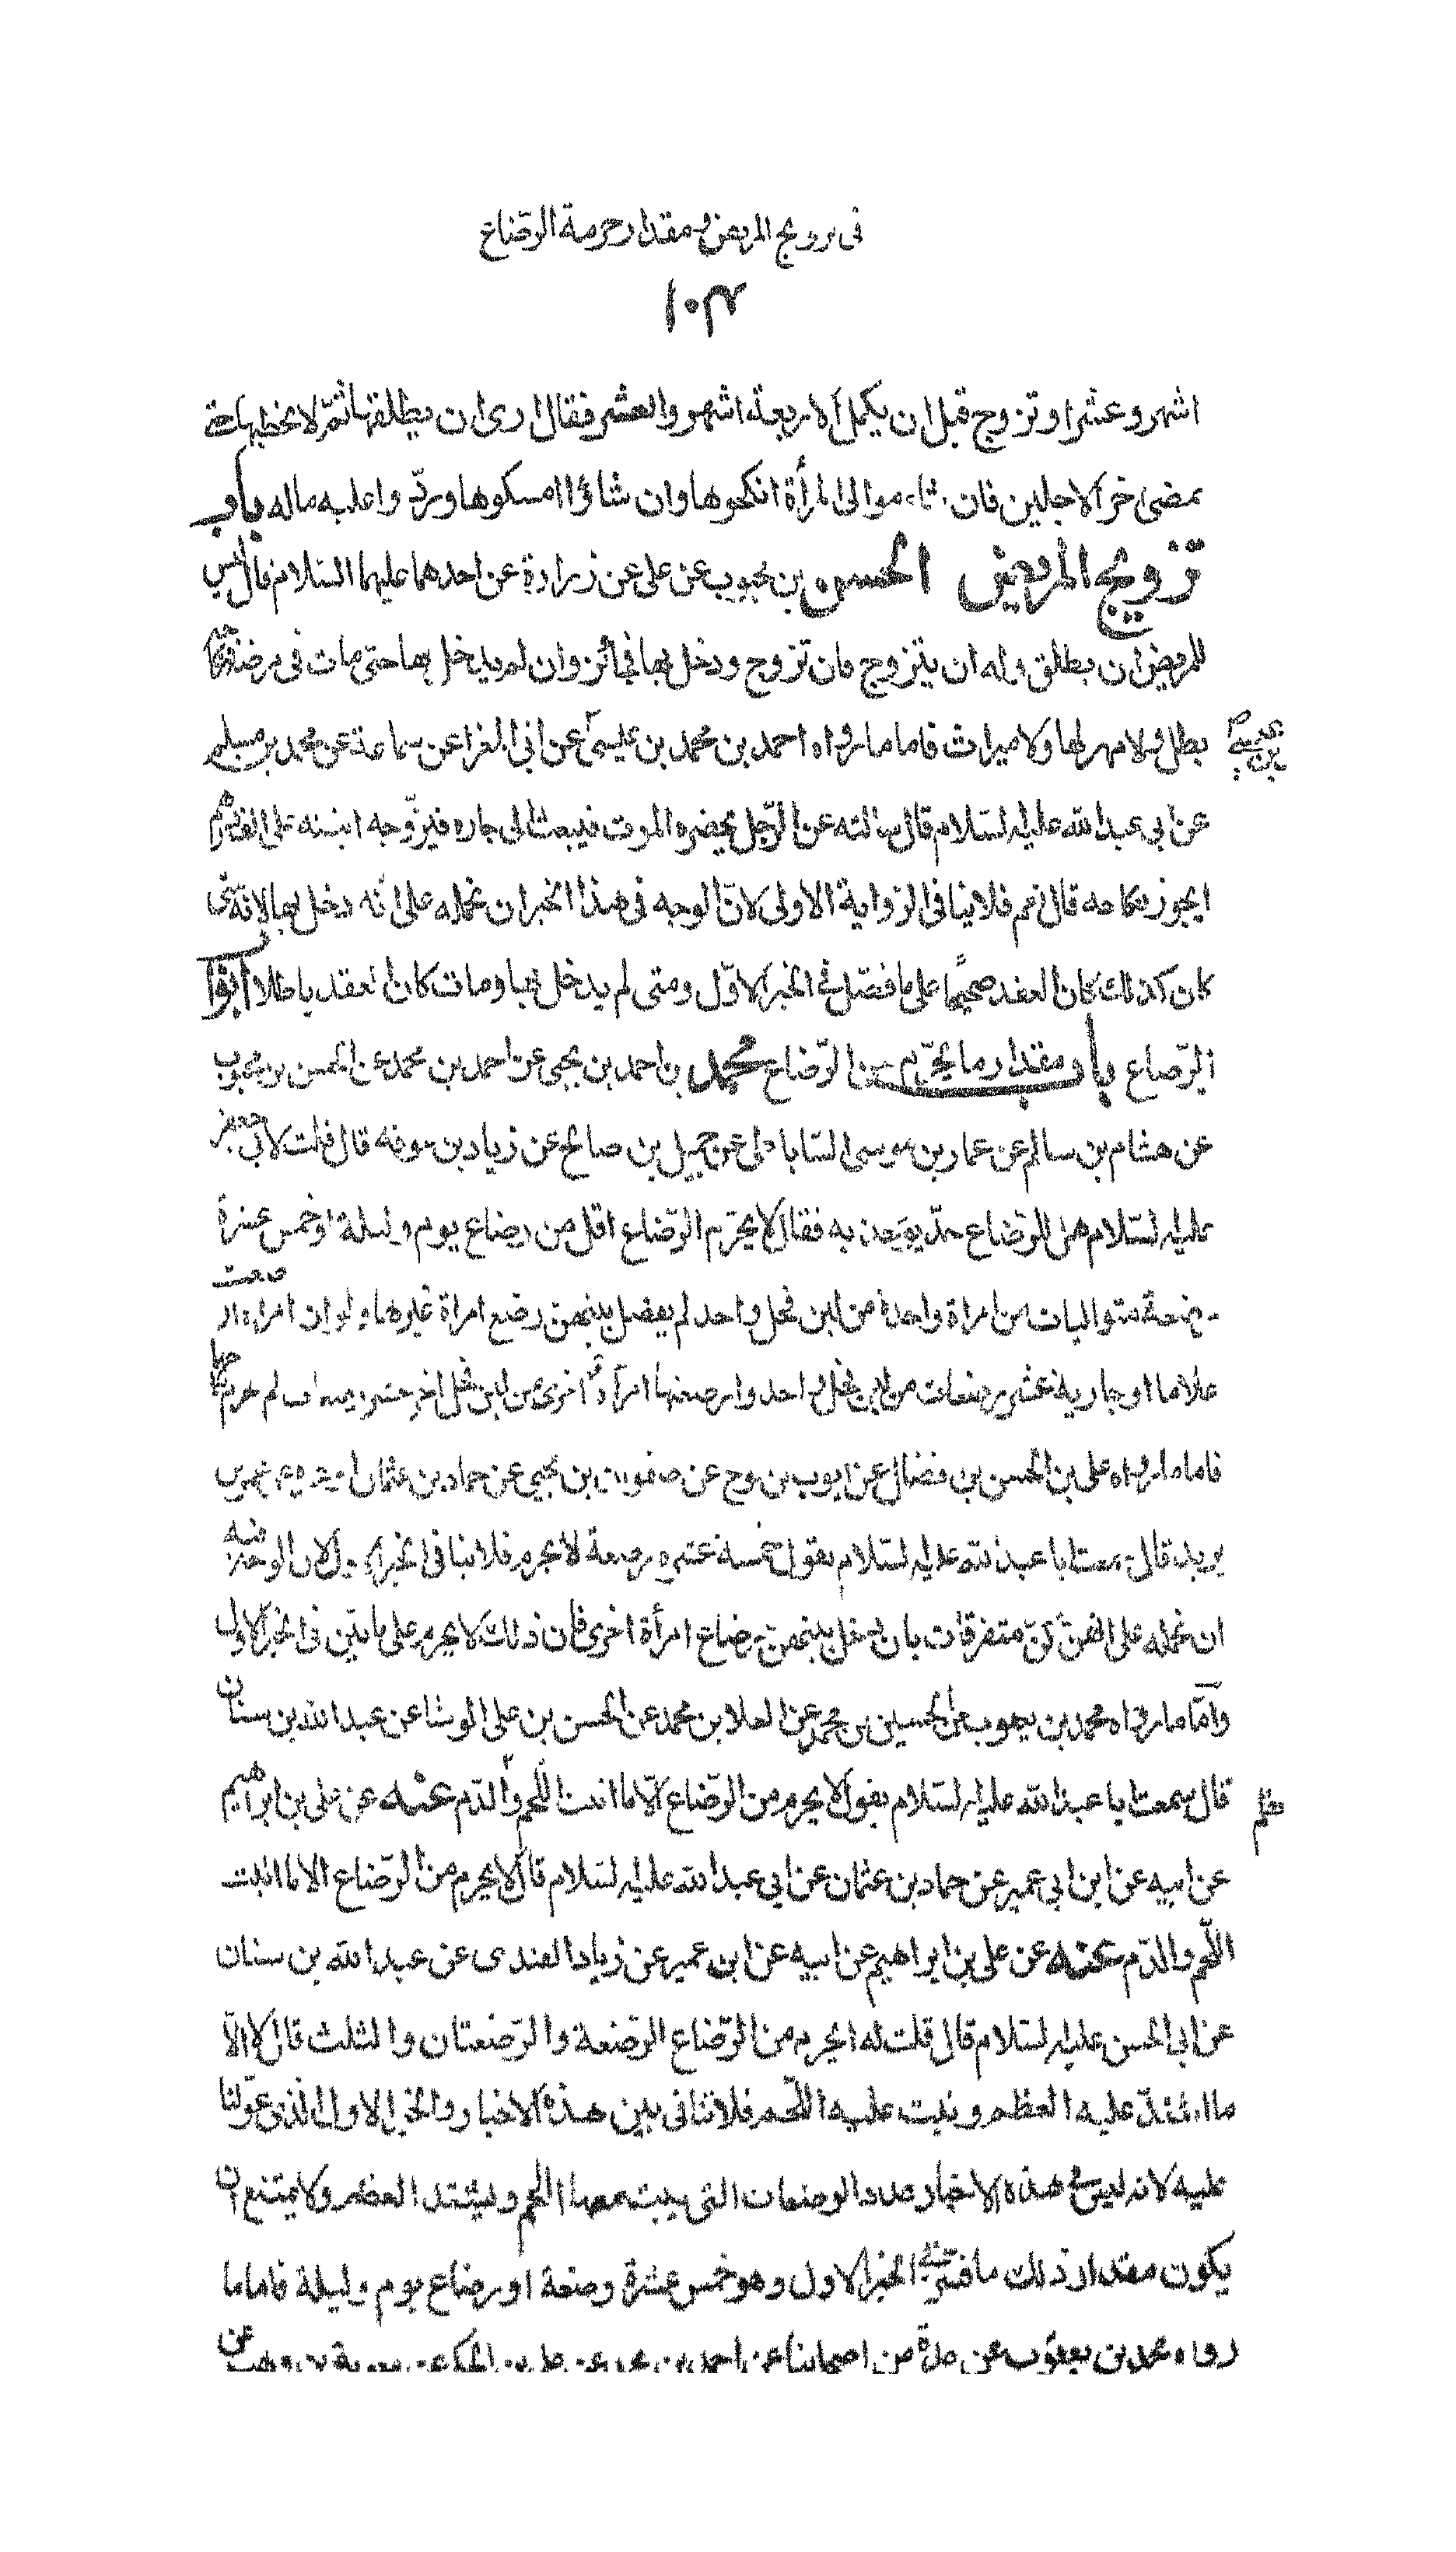 في تزويج المريض و مقدار حرمة الرّضاع
١٠٣
اشهر وعشرا وتزوج قبل ان يكمل الاربعة اشهر والعشر فقال ارى ان يطلقها ثمّ لا يخطبها حتى
يمضى اخر الاجلين فان شاء موالى المرأة انكحوها وان شاؤا امسكوها وردّوا عليه ماله باب
تزويج المريض الحسن بن محبوب عن على عن زرارة عن احدهما عليهما السّلام قال ليس
للمريض ان يطلق وله ان يتزوج فان تزوج ودخل بها فجائز وان لم يدخل بها حتى مات في مرضه فنكاحه
بطل ولا مهر لها ولا ميراث فاما ما رواه احمد بن محمد بن عيسى عن ابى المغرا عن سماعة عن محمد بن مسلم
عن ابي عبد الله عليه السّلام قال سالته عن الرّجل يحضره الموت فيبعث الى جاره فيزوّجه ابنته على الف درهم
ايجوز نكاحه قال نعم فلا ينافى الرواية الاولى لانّ الوجه في هذا الخبر ان نحمله على انّه دخل بها لانه متى
كان كذلك كان العقد صحيحًا على ما فصّل في الخبر الاوّل ومتى لم يدخل بها ومات كان العقد باطلا ابواب
الرّضاع باب مقدار ما يحرّم من الرّضاع محمد بن احمد بن يحيى عن احمد بن محمد عن الحسن بن محبوب
عن هشام بن سالم عن عمار بن موسى السّاباطى عن جميل بن صالح عن زياد بن سوقه قال قلت لابي جعفر
عليه السّلام هل للرّضاع حدّ يؤخذ به فقال لا يحرّم الرّضاع اقل من رضاع يوم وليلة او خمس عشرة
رضعة متواليات من امراة واحدة من لبن فحل واحد لم يفصل بينهنّ رضع امراة غيرها ولو ان امراة ارضعت
غلاما او جارية عشر رضعات من لبن فحل واحد وارضعتها امرأة اخرى من لبن فحل اخر عشر رضعات لم يحرم نكاحها
فاما ما رواه على بن الحسن بن فضال عن ايوب بن نوح عن صفوان بن يحيى عن حماد بن عثمان
يزيد قال سمعت ابا عبد الله عليه السّلام يقول خمسة عشره رضعة لا يحرم فلا ينافى الخبر الاول لان الوجه فيه
ان نحمله على انهنّ كنّ متفرقات بان دخل بينهنّ رضاع امرأة اخرى فان ذلك لا يحرم على ما بيّن في الخبر الاول
وامّا ما رواه محمد بن يعقوب عن الحسين بن محمد عن المعلا بن محمد عن الحسن بن على الوشا عن عبد الله بن سنان
قال سمعت ابا عبد الله عليه السّلام يقول لا يحرم من الرّضاع الّا ما انبت اللّحم والدّم عنه عن على بن ابراهيم
عن ابيه عن ابن ابي عمير عن حماد بن عثمان عن ابي عبد الله عليه السّلام قال لا يحرم من الرّضاع الا ما انبت
اللّحم والدّم عنه عن على بن ابراهيم عن ابيه عن ابن عمير عن زياد القندى عن عبد الله بن سنان
عن ابي الحسن عليه السّلام قال قلت له ايحرم من الرّضاع الرّضعة والرّضعتان والثلث قال لا الّا
ما اشتدّ عليه العظم ونبت عليه اللّحم فلا تنافى بين هذه الاخبار والخبر الاول الذي عوّلنا
عليه لانه ليس في هذه الاخبار عدد الرضعات التى ينبت معها اللحم ويشتد العظم ولا يمتنع ان
يكون مقدار ذلك ما فسّر في الخبر الاول وهو خمس عشرة رضعة او رضاع يوم وليلة فاما ما
رواه محمد بن يعقوب عن عدة من اصحابنا عن احمد بن محمد عن على بن الحكم عن معوية بن وهب عن